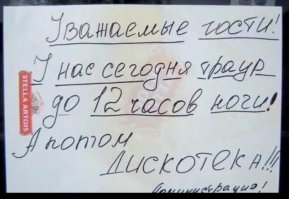 Уважаемые гости!
У нас сегодня траур
до 12 часов ночи!
А потом
Дискотека!!!
Администрация!
STELLA ARTOIS